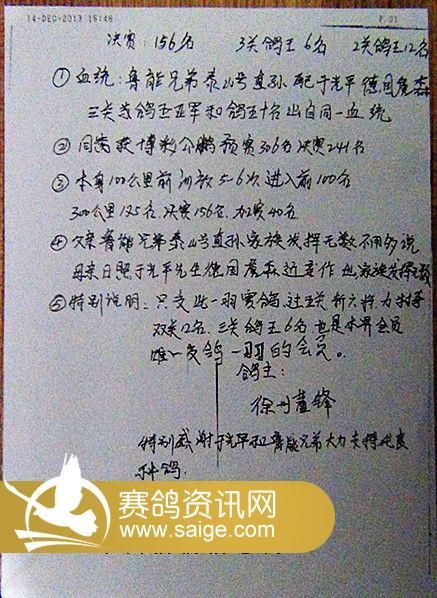 14-DEC-2013 15:46 P.01
决赛：156名 3关鸽王6名 2关鸽王12名
①血统：鲁能兄弟泰山号直孙配于光平德国詹森
三关赛鸽王亚军和鸽王十名出自同一血统
②同窝获博彩公鹏预赛306名决赛241名
③本身100公里前训放5-6次进入前100名
300公里135名 决赛156名 加赛40名
④父亲鲁能兄弟泰山号直孙家族发挥无数不用多说
母亲日照于光平先生德国詹森近亲作出家族发挥无数
⑤特别说明：只支此一羽赛鸽过五关斩六将力
双关12名，三关鸽王6名也是本界会员
唯一交鸽一羽的会员。
鸽主：
徐丹 锋
特别感谢于光平和鲁能兄弟大力支持优良
种鸽
赛鸽资讯网
www.saige.com